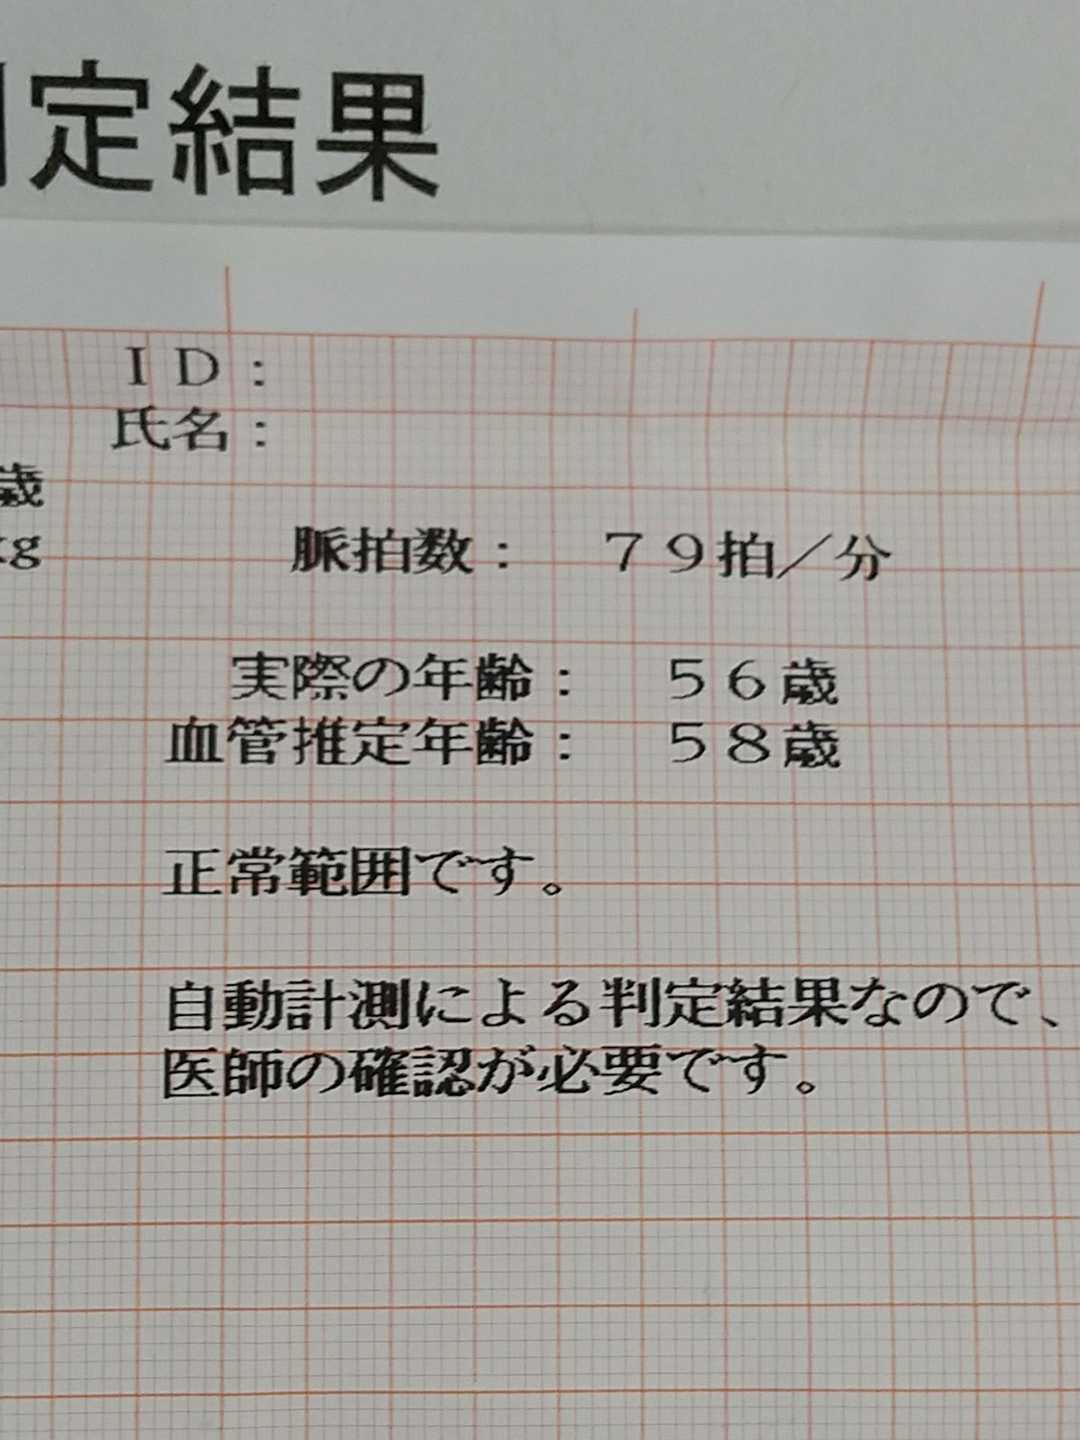 定結果
ＩＤ：
氏名：
歳
kg 脈拍数： ７９拍／分
実際の年齢： ５６歳
血管推定年齢： ５８歳
正常範囲です。
自動計測による判定結果なので、
医師の確認が必要です。